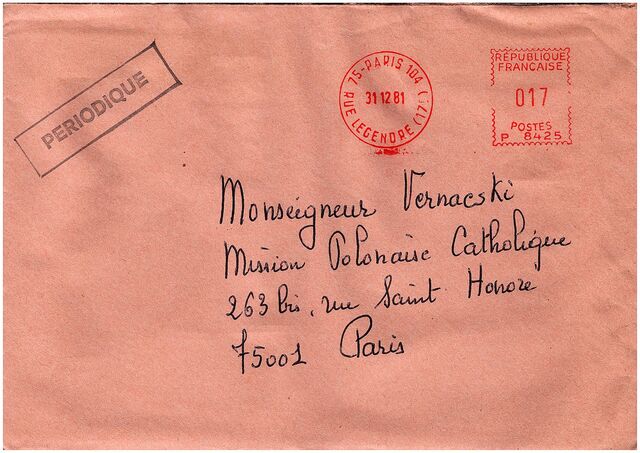 PERIODIQUE
75-PARIS 104 ( )
RUE LEGENDRE (17)
31 12 81
RÉPUBLIQUE
FRANÇAISE
017
POSTES
P 8425
Monseigneur Vernacski
Mission Polonaise Catholique
263 bis, rue Saint Honoré
75001 Paris